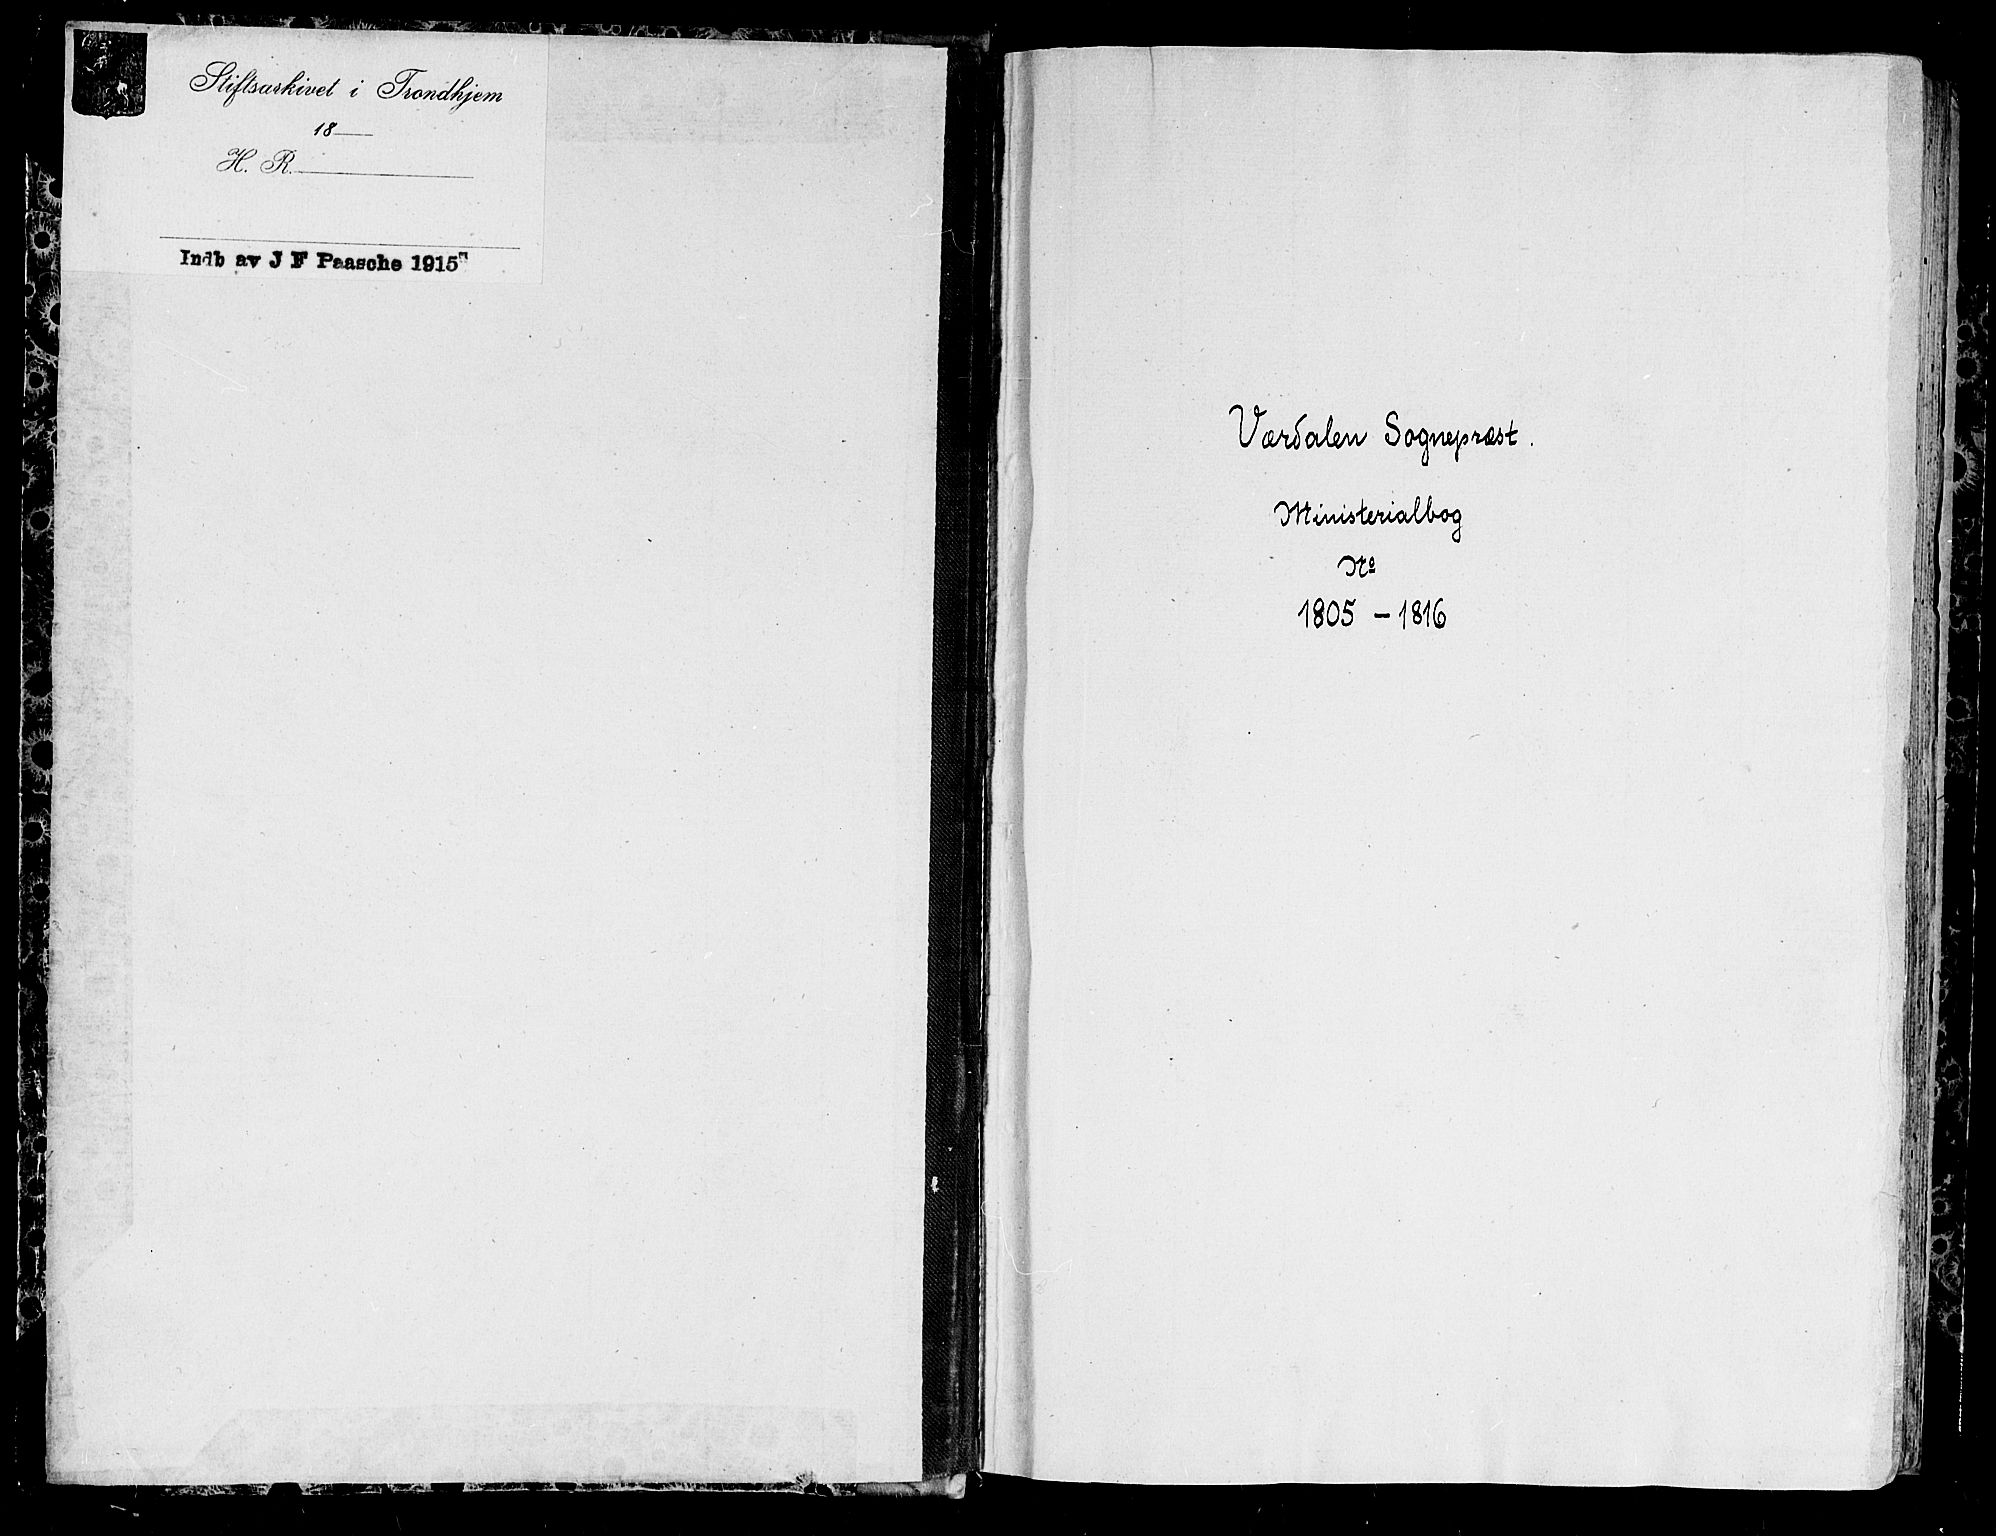 Stiftsarkivet i Trondhjem
18
H. R.
Indb av J F Paasche 1915
Værdalen Sognepræst.
Ministerialbog
Nº
1805 – 1816